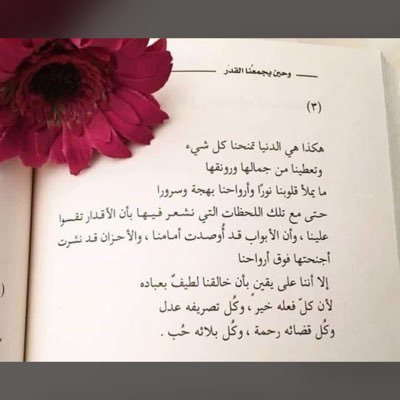 وحين يجمعنا القدَر
(٣)
هكذا هي الدنيا تمنحنا كل شيء
وتعطينا من جمالها ورونقها
ما يملأ قلوبنا نورًا وأرواحنا بهجة وسرورا
حتى مع تلك اللحظات التي نشعر فيها بأن الأقدار تقسوا
علينا ، وأن الأبواب قد أُوصدت أمامنا ، والأحزان قد نشرت
أجنحتها فوق أرواحنا
إلا أننا على يقين بأن خالقنا لطيفٌ بعباده
لأن كلّ فعله خير ، وكُل تصريفه عدل
وكُل قضائه رحمة ، وكُل بلائه حُب .